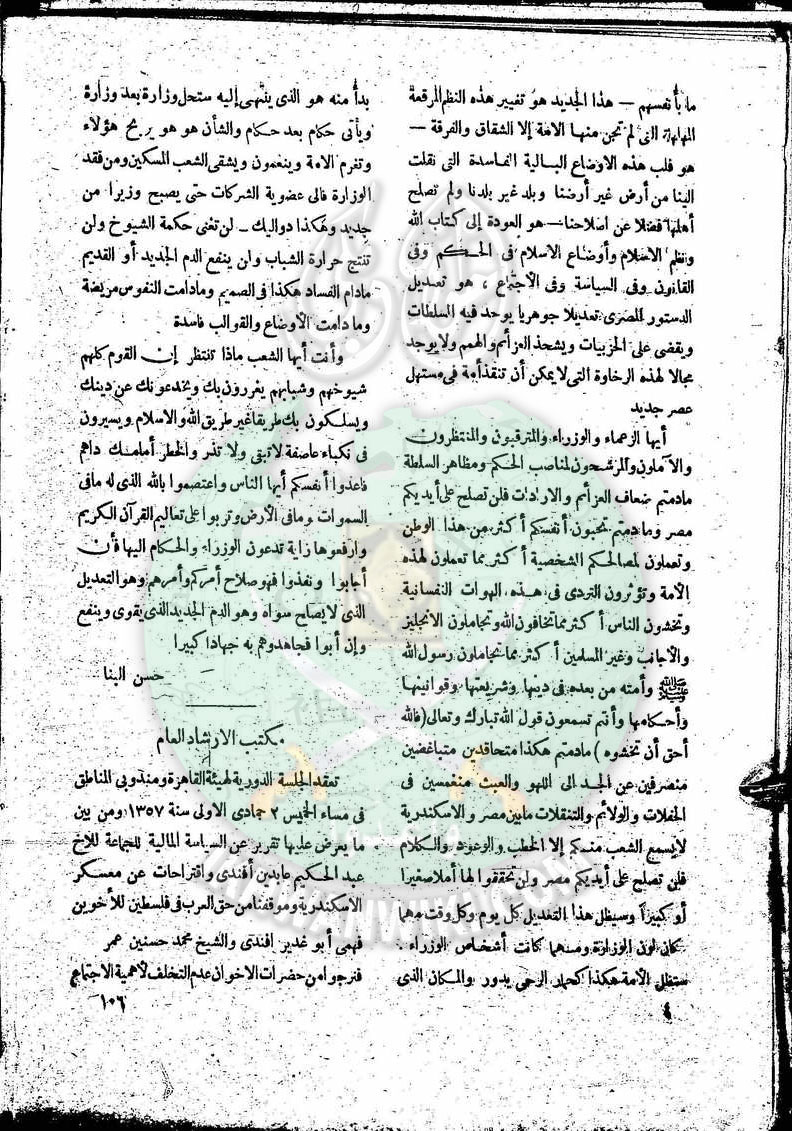 ما بأنفسهم — هذا الجديد هو تغيير هذه النظم المرقعة
المهلهلة التى لم تجن منها الامة إلا الشقاق والفرقة —
هو قلب هذه الاوضاع البالية الفاسدة التى نقلت
الينا من أرض غير أرضنا وبلد غير بلدنا ولم تصلح
أهلها فضلا عن اصلاحنا — هو العودة إلى كتاب الله
ونظم الاسلام وأوضاع الاسلام فى الحكم وفى
القانون وفى السياسة وفى الاجتماع ، هو تعديل
الدستور المصرى تعديلا جوهريا يوحد فيه السلطات
ويقضى على الحزبيات ويشحذ العزائم والهمم ولا يوجد
مجالا لهذه الرخاوة التى لا يمكن أن تنقذ أمة فى مستهل
عصر جديد
أيها الزعماء والوزراء والمترقبون والمنتظرون
والآملون والمرشحون لمناصب الحكم ومظاهر السلطة
مادمتم ضعاف العزائم والارادات فلن تصلح على أيديكم
مصر وما دمتم تحبون أنفسكم أكثر من هذا الوطن
وتعملون لمصالحكم الشخصية أكثر مما تعملون لهذه
الأمة وتؤثرون التردى فى هذه الهوات النفسانية
وتخشون الناس أكثر مما تخافون الله وتجاملون الانجليز
والأجانب وغير المسلمين أكثر مما تجاملون رسول الله
ﷺ وأمته من بعده فى دينها وشريعتها وقوانينها
وأحكامها وأنتم تسمعون قول الله تبارك وتعالى (فالله
أحق أن تخشوه) مادمتم هكذا متحاقدين متباغضين
منصرفين عن الجد الى اللهو والعبث منغمسين فى
الحفلات والولائم والتنقلات مابين مصر والاسكندرية
لايسمع الشعب منكم إلا الخطب والوعود والكلام
فلن تصلح على أيديكم مصر ولن تحققوا لها أملا صغيرا
أو كبيراً وسيظل هذا التعديل كل يوم وكل وقت مهما
كان لون الوزارة ومهما كانت أشخاص الوزراء .
ستظل الأمة هكذا كحمار الرحى يدور والمكان الذى
٤
بدأ منه هو الذى ينتهى إليه ستحل وزارة بعد وزارة
ويأتى حكام بعد حكام والشأن هو هو يربح هؤلاء
وتغرم الامة وينعمون ويشقى الشعب المسكين ومن فقد
الوزارة فالى عضوية الشركات حتى يصبح وزيرا من
جديد وهكذا دواليك — لن تغنى حكمة الشيوخ ولن
تنتج حرارة الشباب ولن ينفع الدم الجديد أو القديم
مادام الفساد هكذا فى الصميم ومادامت النفوس مريضة
وما دامت الأوضاع والقوالب فاسدة
وأنت أيها الشعب ماذا تنتظر إن القوم كلهم
شيوخهم وشبابهم يغررون بك ويخدعونك عن دينك
ويسلكون بك طريقا غير طريق الله والاسلام ويسيرون
فى نكباء عاصفة لاتبقى ولا تذر والخطر أمامك داهم
فاعذوا أنفسكم أيها الناس واعتصموا بالله الذى له مافى
السموات ومافى الأرض وتربوا على تعاليم القرآن الكريم
وارفعوها راية تدعون الوزراء والحكام اليها فأن
أجابوا ونفذوا فهو صلاح أمركم وأمرهم وهو التعديل
الذى لا يصلح سواه وهو الدم الجديد الذى يقوى وينفع
وإن أبوا فجاهدوهم به جهادا كبيرا
حسن البنا
مكتب الارشاد العام
تعقد الجلسة الدورية لهيئة القاهرة ومندوبى المناطق
فى مساء الخميس ٢ جمادى الاولى سنة ١٣٥٧ ومن بين
ما يعرض عليها تقرير عن السياسة المالية للجماعة للاخ
عبد الحكيم عابدين أفندى واقتراحات عن معسكر
الاسكندرية وموقفنا من حق العرب فى فلسطين للأخوين
فهمى أبو غدير افندى والشيخ محمد حسنين عمر
فنرجوا من حضرات الاخوان عدم التخلف لأهمية الاجتماع
١٠٦